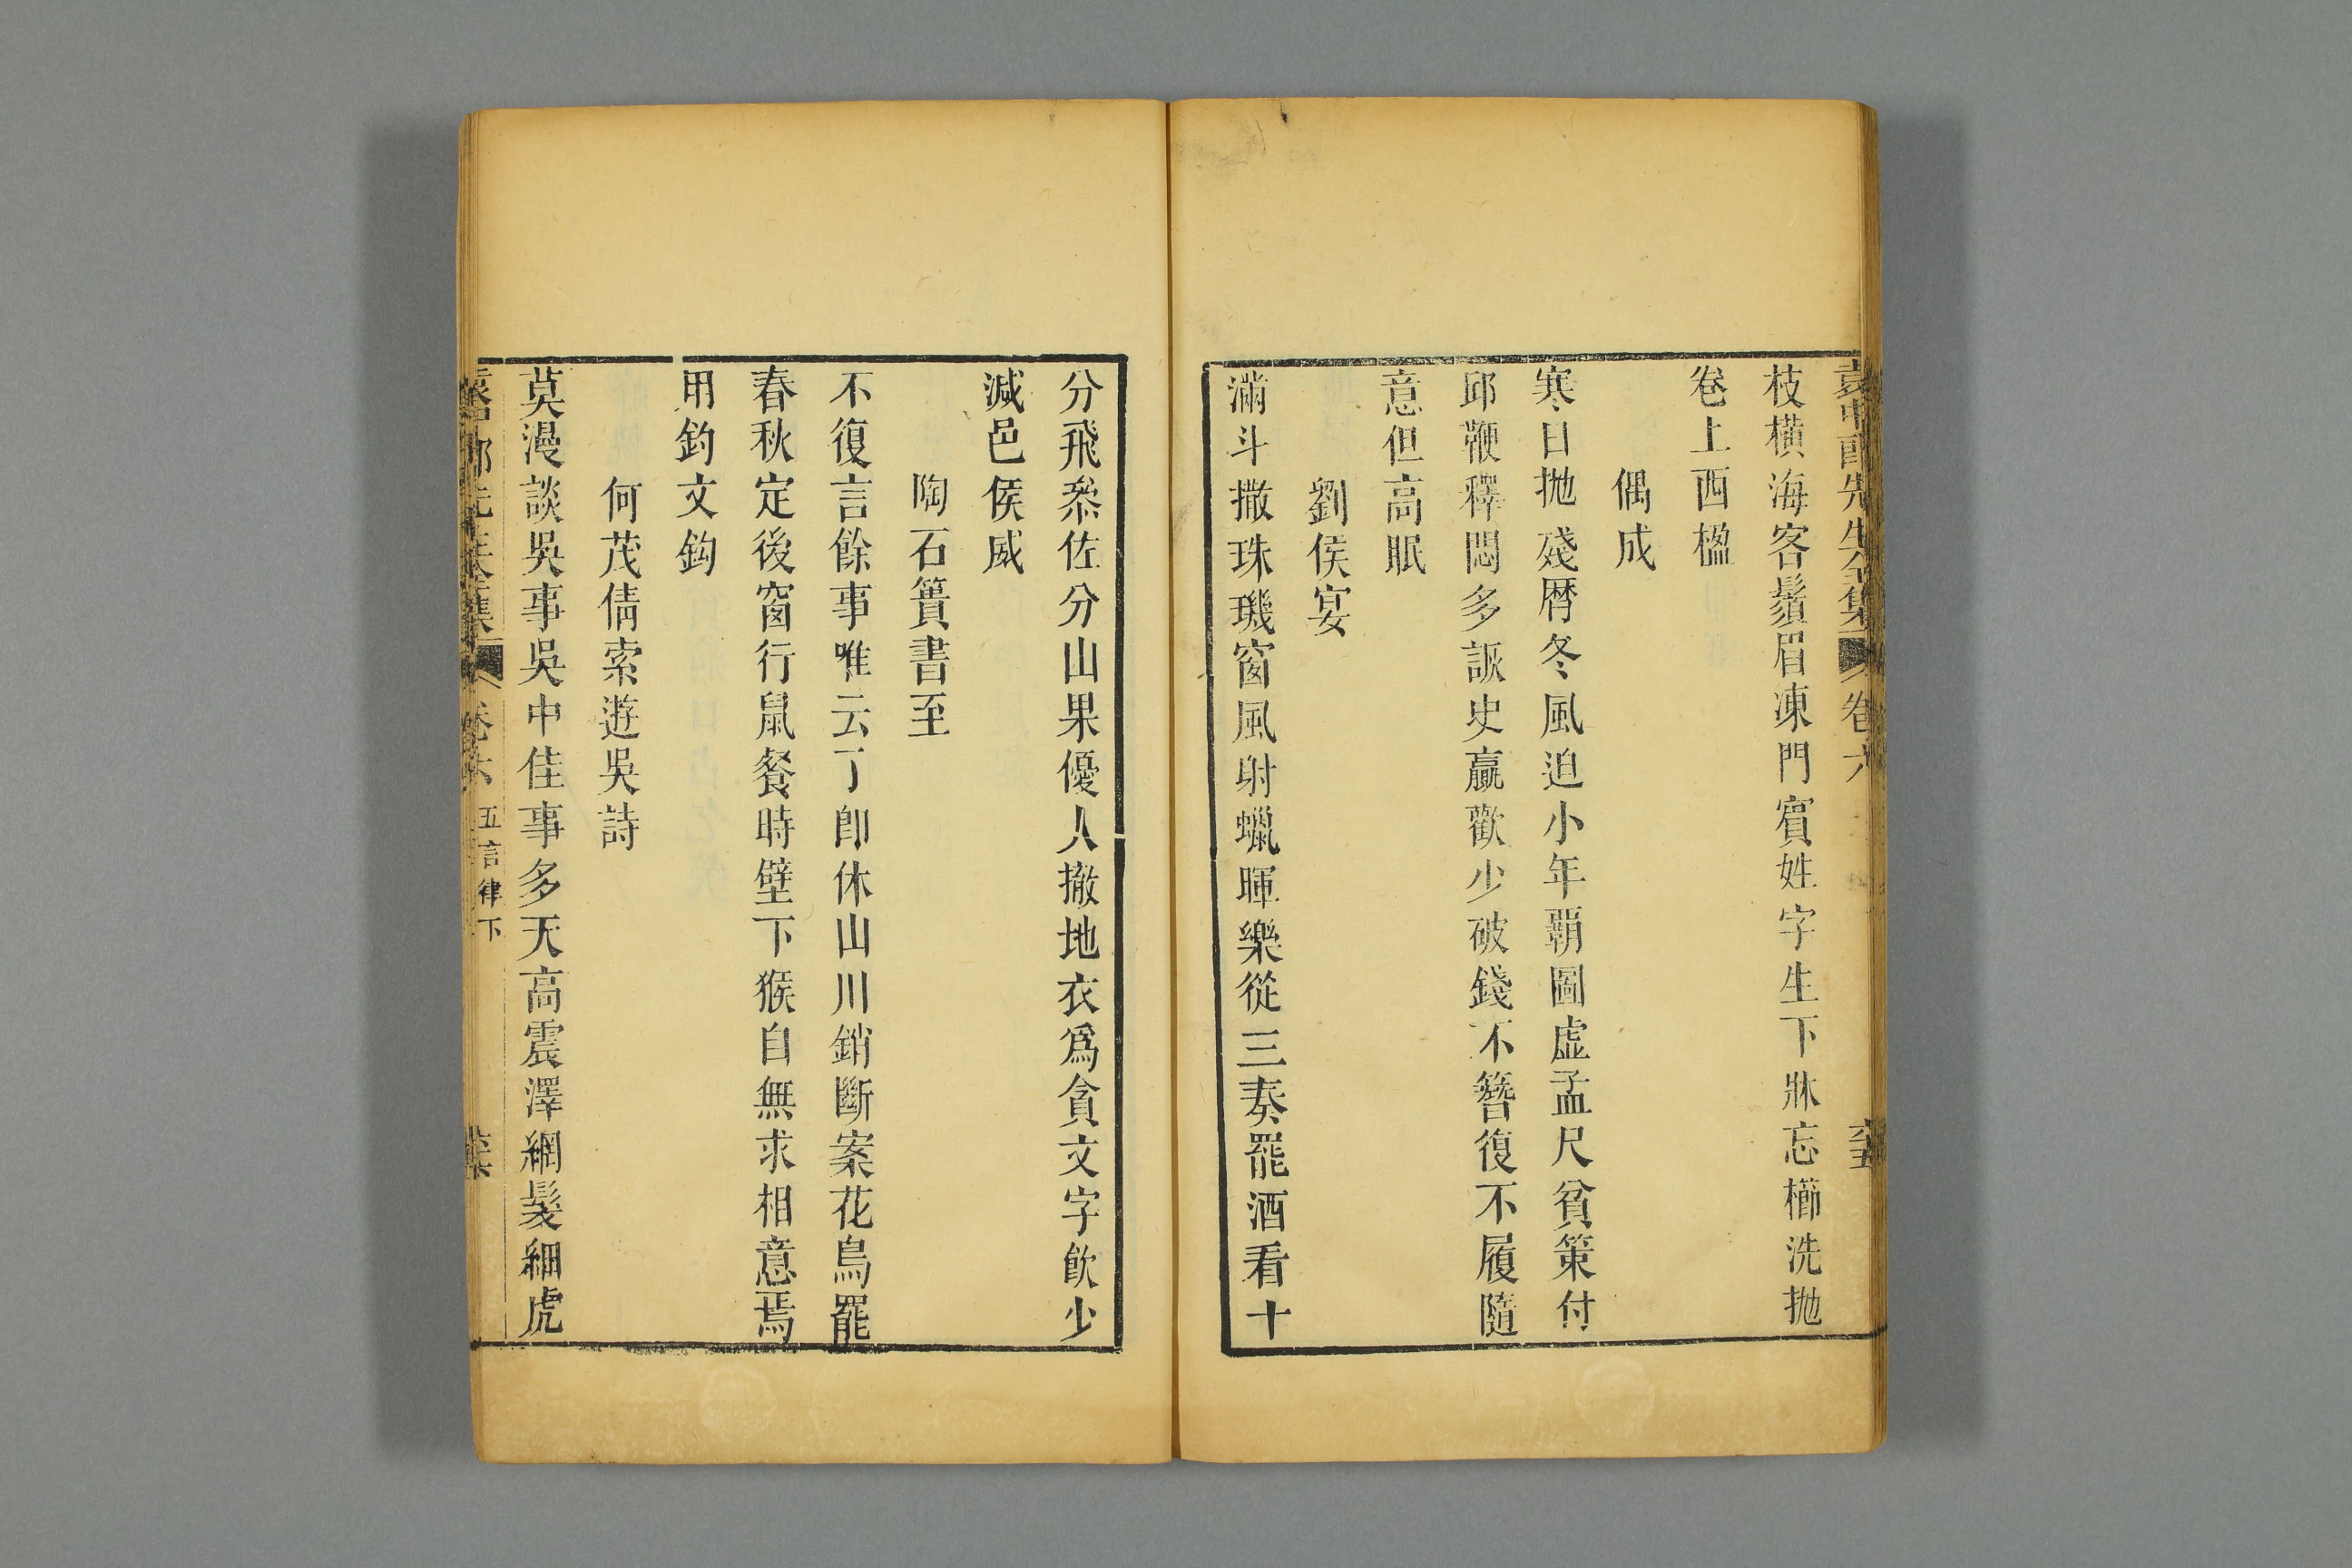 袁中郎先生全集 卷六
枝橫海客鬚眉凍門賓姓字生下牀忘櫛洗拋
卷上西楹
偶成
寒日拋殘曆冬風迫小年覇圖虛孟尺貧策付
邱鞭釋悶多謳史贏歡少破錢不簪復不履隨
意但高眠
劉侯宴
滿斗撒珠璣窗風射蠟暉樂從三奏罷酒看十
分飛叅佐分山果優人撤地衣爲貪文字飲少
減邑侯威
陶石簣書至
不復言餘事唯云丁卽休山川銷斷案花鳥罷
春秋定後窗行鼠餐時壁下猴自無求相意焉
用釣文鈎
何茂倩索遊吳詩
莫漫談吳事吳中佳事多天高震澤網髮細虎
袁中郎先生全集 卷六 五言律下